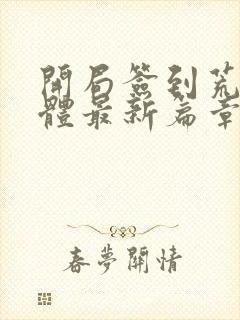 開局簽到荒
體最新篇章
春夢關情